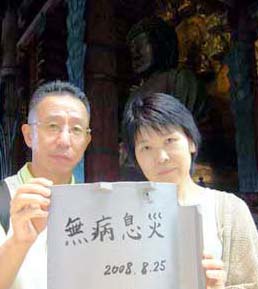 無病息災
2008.8.25